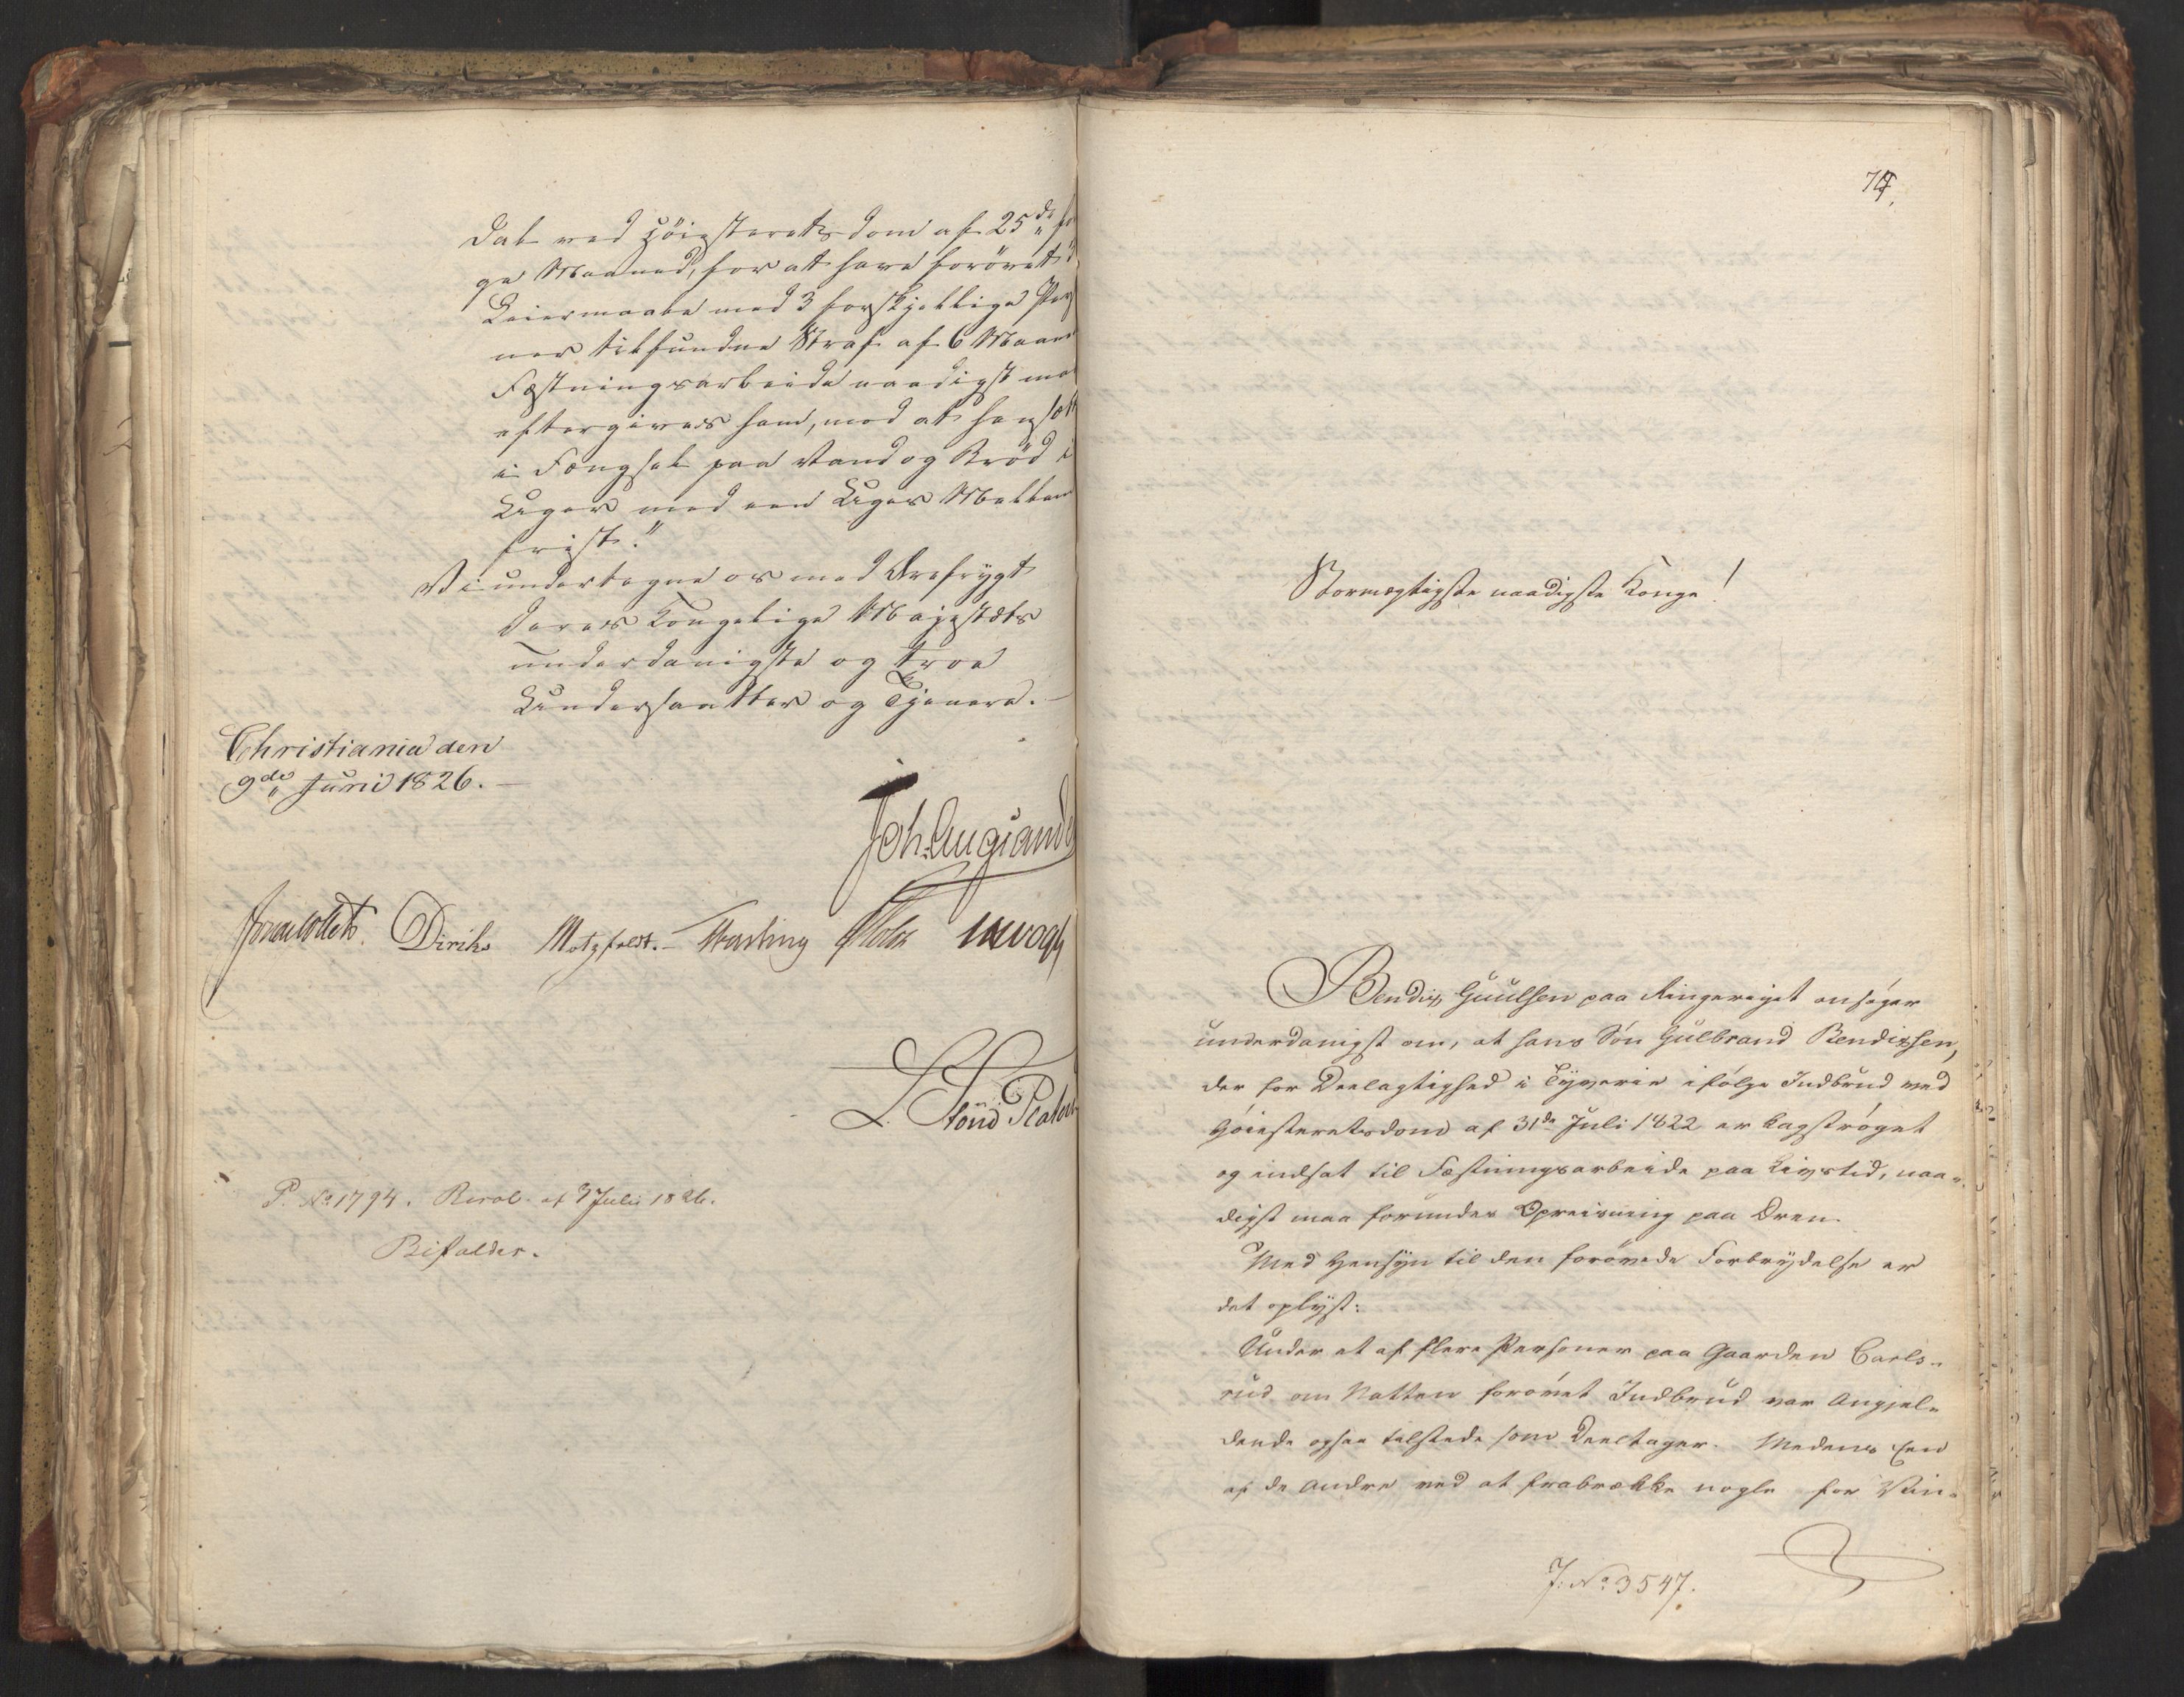 dal ved Høiesterets dom af 25de
ge Maaned, for at have forøvet
Leiermaale med 3 forskjellige Per
ner tilfundne Straf af 6 Maan
Fæstningsarbeide naadigst maa
eftergives ham, mod at hensætt
i Fængsel paa Vand og Brød i
Uger med een Uges Mellem
frist."
Vi undertegne os med Ærefrygt
Deres Kongelige Majestæts
underdanigste og troe
Undersaatter og Tjenere. —
Christiania den
9de Juni 1826. —
Joh. Aug: Sande
Jonas Collett. Diriks Motzfeldt. — Holst Vogt
L.
P. No 1794. Resol. af 3 Juli 1826.
Bifaldes.
Stormægtigste naadigste Konge!
Bendix Guulsen paa Ringeriget ansøger
underdanigst om, at hans Søn Gulbrand Bendixsen,
der for Deelagtighed i Tyverie ifølge Indbrud ved
Høiesteretsdom af 31de Juli 1822 er kagstrøget
og indsat til Fæstningsarbeide paa Livstid, naa-
digst maa forundes Opreisning paa Æren.
Med Hensyn til den forøvede Forbrydelse er
det oplyst:
Under et af flere Personer paa Gaarden Carls-
rud om Natten forøvet Indbrud var Angjel-
dende ogsaa tilstede som Deeltager. Medens Een
af de Andre ved at frabrække nogle for Vin-
J: No 3547.